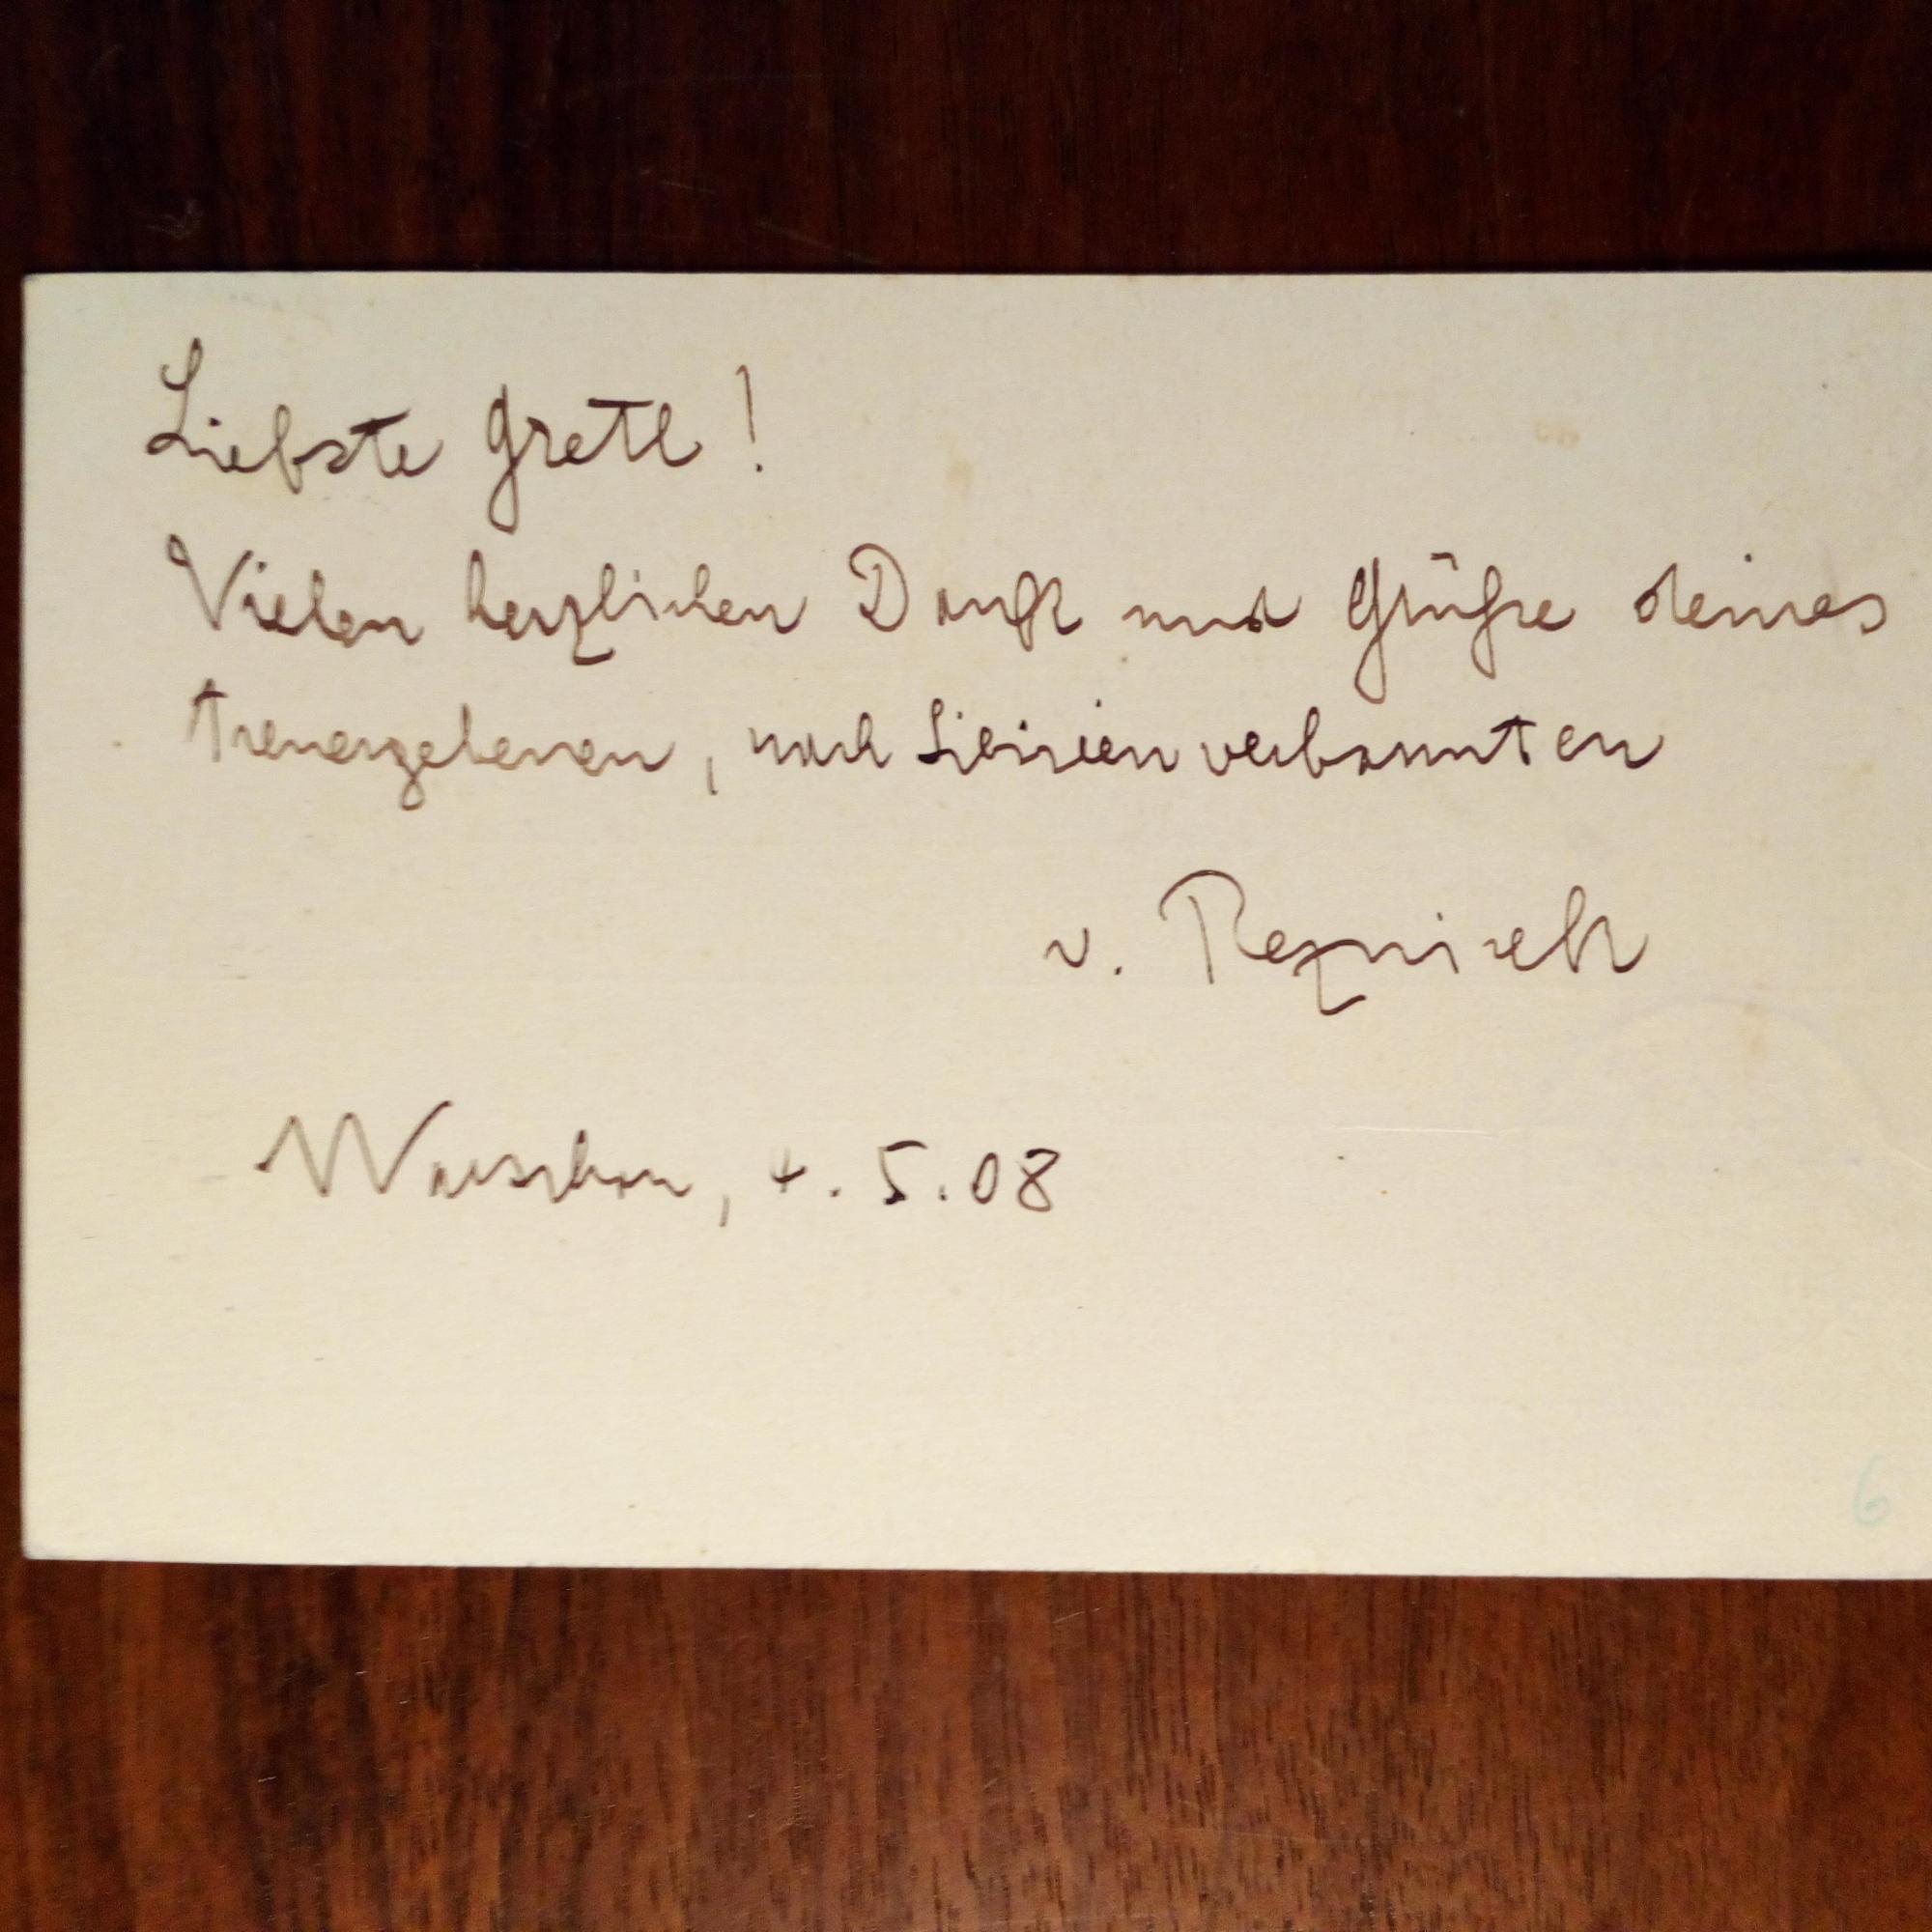 Liebste Gretl!
Vielen herzlichen Dank und Grüße deines
treuergebenen, nach Sibirien verbannten
v. Reznicek
Warschau, 4.5.08
6